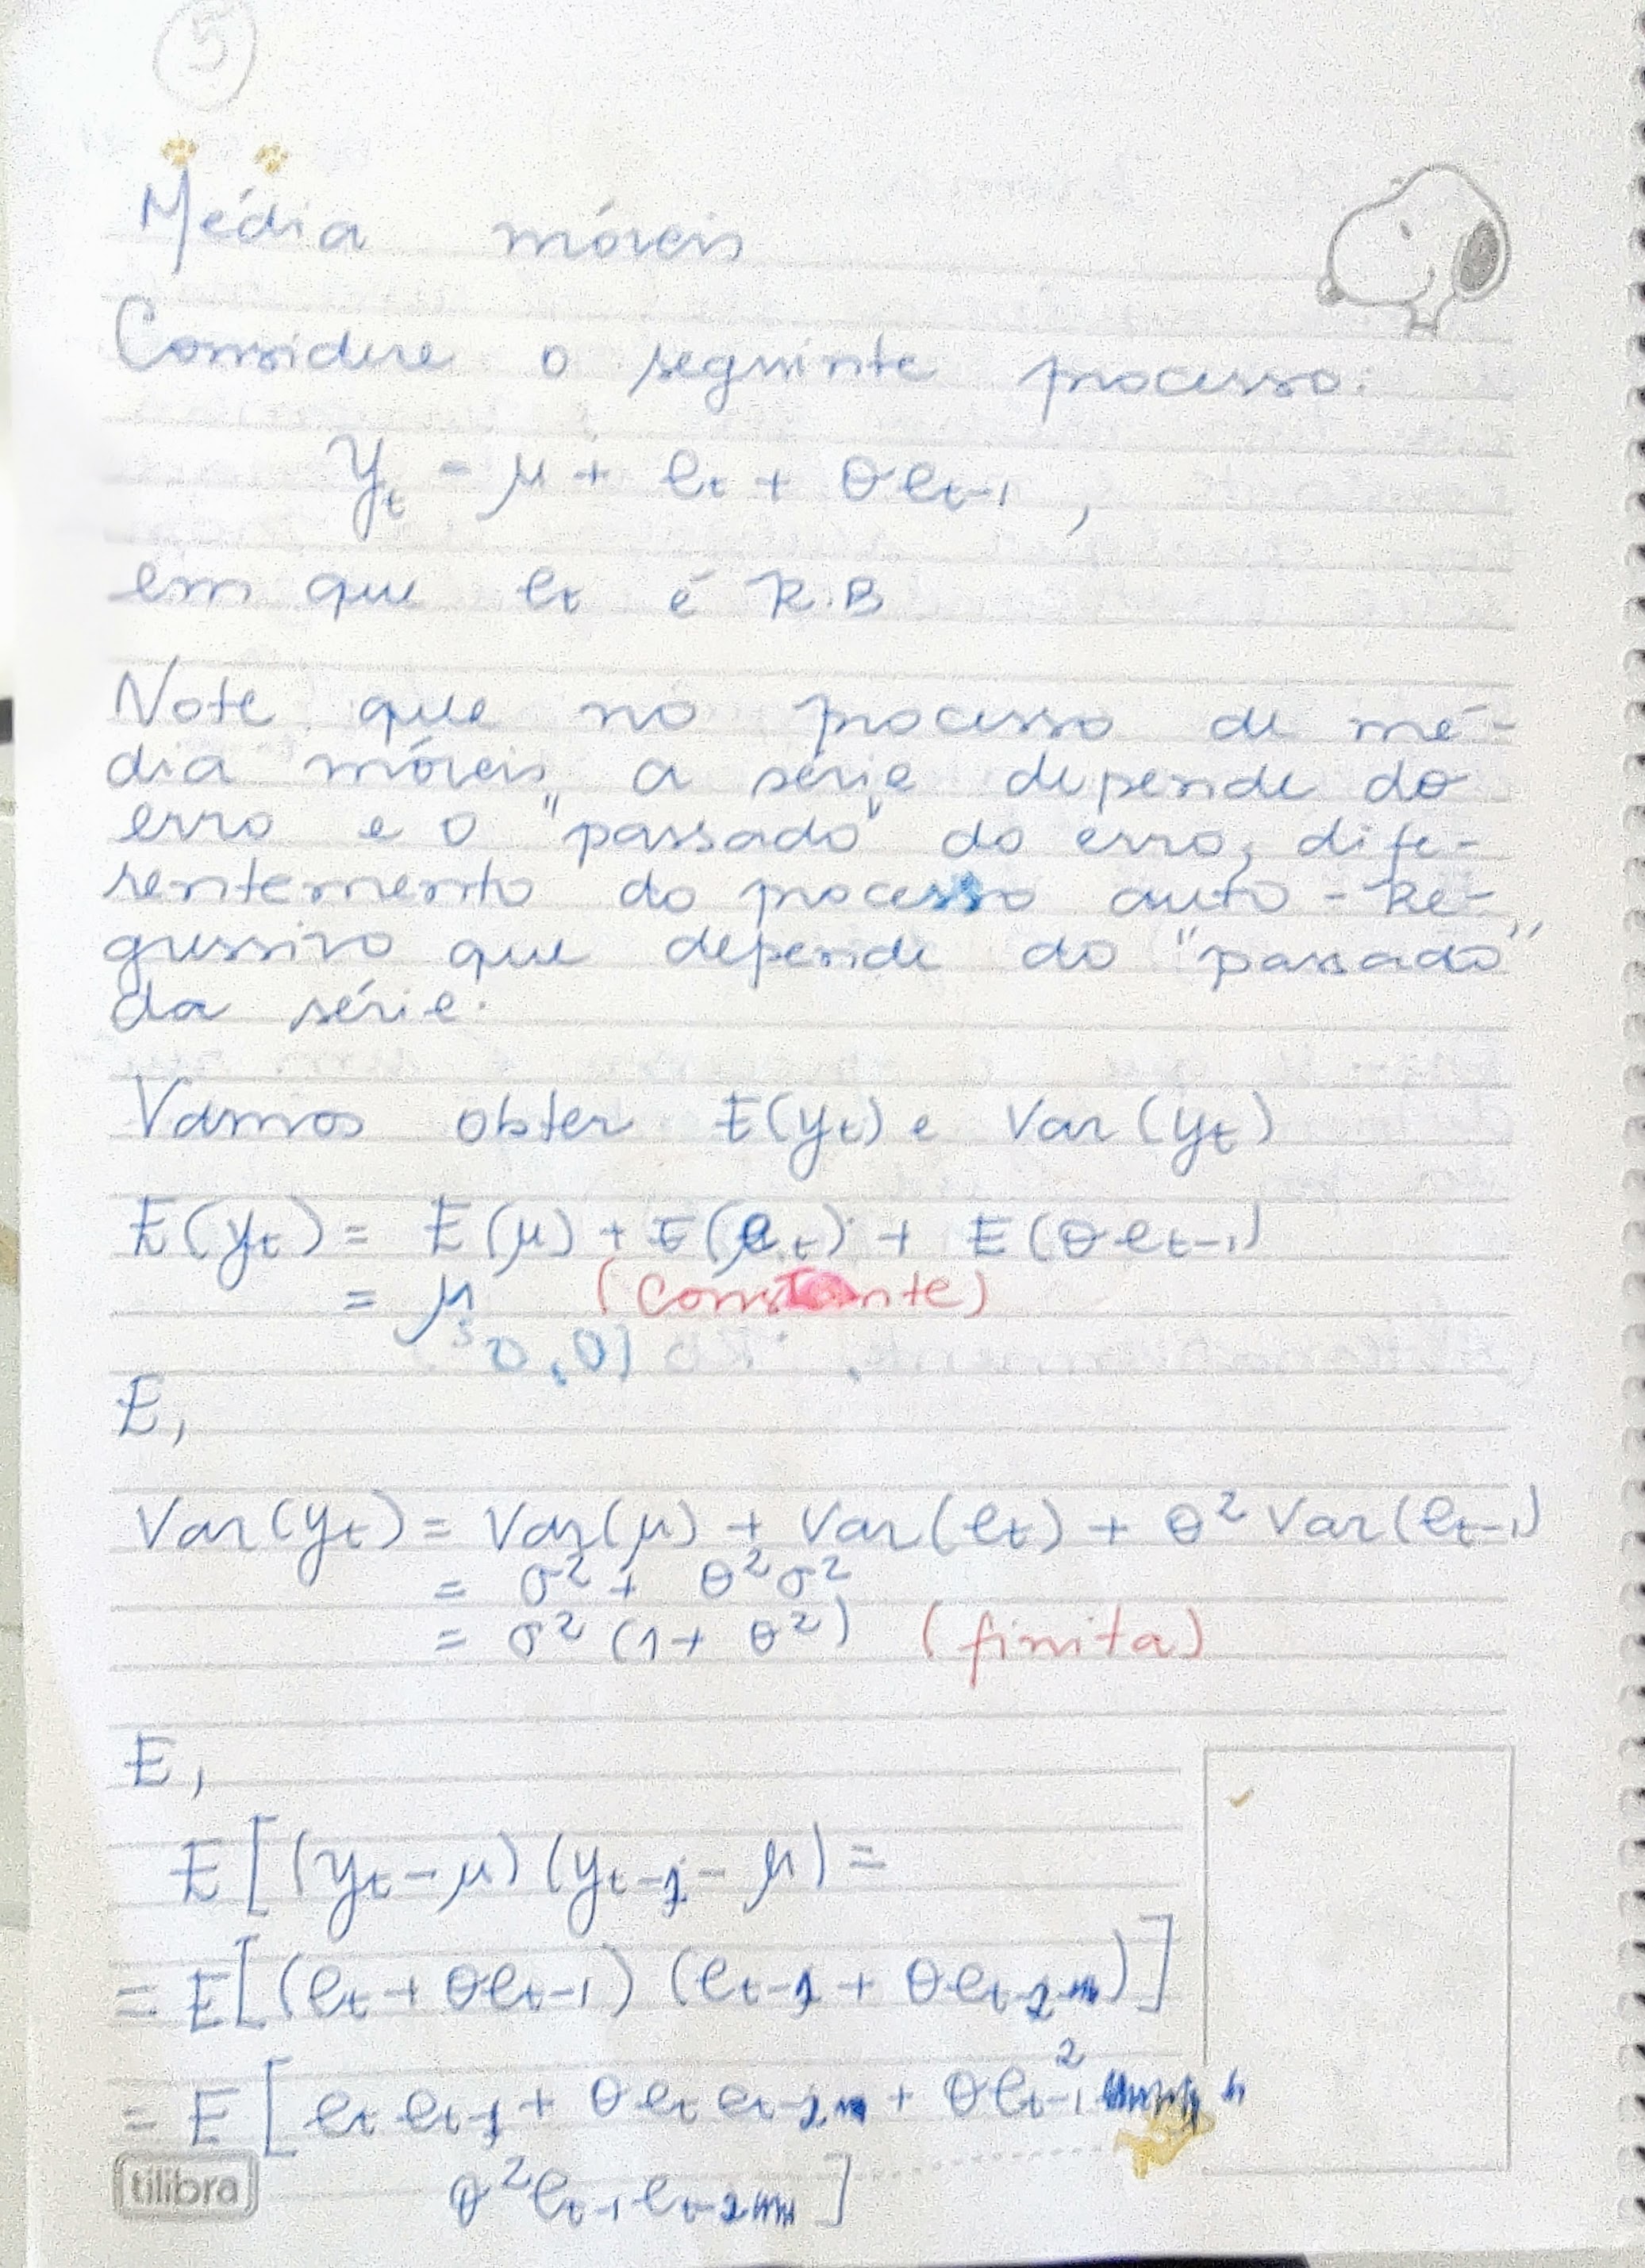 5
Média móveis
Considere o seguinte processo:
y_t = μ + e_t + θe_{t-1},
em que e_t é R.B
Note que no processo de mé-
dia móveis, a série depende do
erro e o "passado" do erro, dife-
rentemento do processo auto-re-
gressivo que depende do "passado"
da série.
Vamos obter E(y_t) e Var(y_t)
E(y_t) = E(μ) + E(e_t) + E(θe_{t-1})
= μ (constante)
E,
Var(y_t) = Var(μ) + Var(e_t) + θ² Var(e_{t-1})
= σ² + θ²σ²
= σ² (1 + θ²) (finita)
E,
E[(y_t - μ)(y_{t-1} - μ) =
= E[(e_t + θe_{t-1}) (e_{t-1} + θe_{t-2})]
= E[e_t e_{t-1} + θe_t e_{t-2} + θe²_{t-1} +
θ²e_{t-1}e_{t-2}]
tilibra